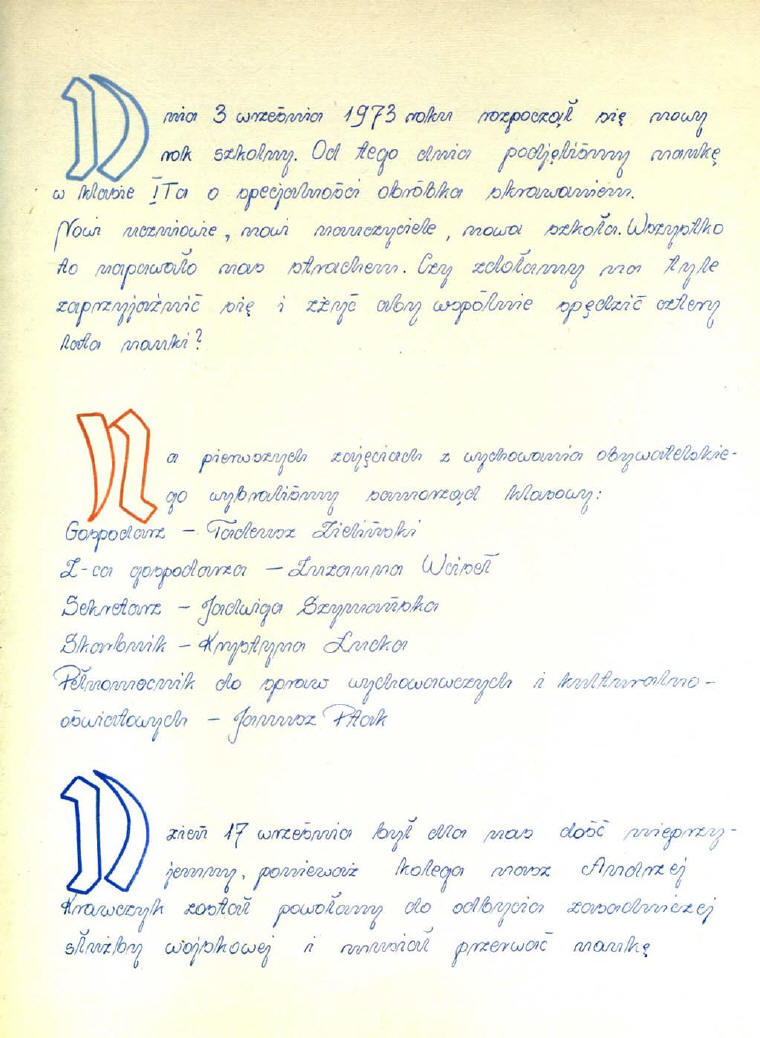 Dnia 3 września 1973 roku rozpoczął się nowy
rok szkolny. Od tego dnia podjęliśmy naukę
w klasie ITa o specjalności obróbka skrawaniem.
Nowi uczniowie, nowi nauczyciele, nowa szkoła. Wszystko
to napawało nas strachem. Czy zdołamy na tyle
zaprzyjaźnić się i zżyć aby wspólnie spędzić cztery
lata nauki?
Na pierwszych zajęciach z wychowania obywatelskie-
go wybraliśmy samorząd klasowy:
Gospodarz - Tadeusz Zieliński
Z-ca gospodarza - Zuzanna Wąseł
Sekretarz - Jadwiga Szymańska
Skarbnik - Krystyna Łucka
Pełnomocnik do spraw wychowawczych i kulturalno-
oświatowych - Janusz Ptak
Dzień 17 września był dla nas dość nieprzy-
jemny, ponieważ kolega nasz Andrzej
Krawczyk został powołany do odbycia zasadniczej
służby wojskowej i musiał przerwać naukę